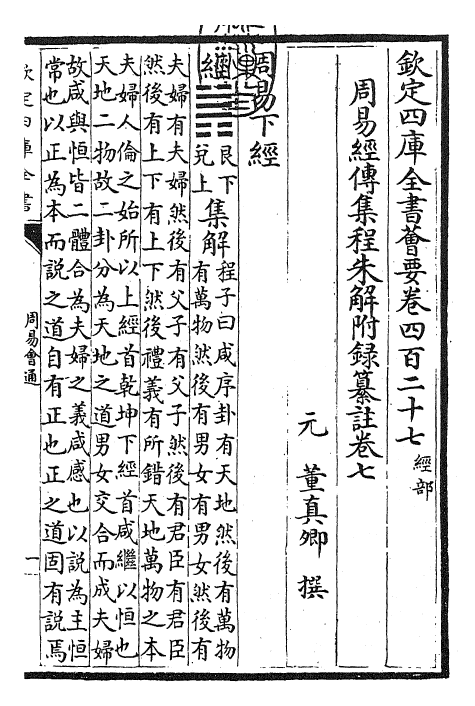 欽定四庫全書薈要卷四百二十七 經部
周易經傳集程朱解附録纂註卷七
元 董真卿 撰
周易下經
經 艮下
兌上
集解 程子曰咸序卦有天地然後有萬物
有萬物然後有男女有男女然後有
夫婦有夫婦然後有父子有父子然後有君臣有君臣
然後有上下有上下然後禮義有所錯天地萬物之本
夫婦人倫之始所以上經首乾坤下經首咸繼以恒也
天地二物故二卦分為天地之道男女交合而成夫婦
故咸與恒皆二體合為夫婦之義咸感也以說為主恒
常也以正為本而說之道自有正也正之道固有說焉
欽定四庫全書
周易會通
一